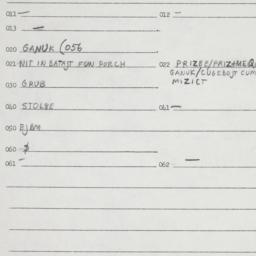 011 — 012 —
013 —
020 GANUK (056
021 NIT IN BATAJT FON PORCH 022 PRIZEE/PRIZAMEQ
GANUK/CUGEBOJT CUM
MIZICT
030 GRUB
040 STOLBE 041 —
050 EJBM
060 $
061 — 062 —